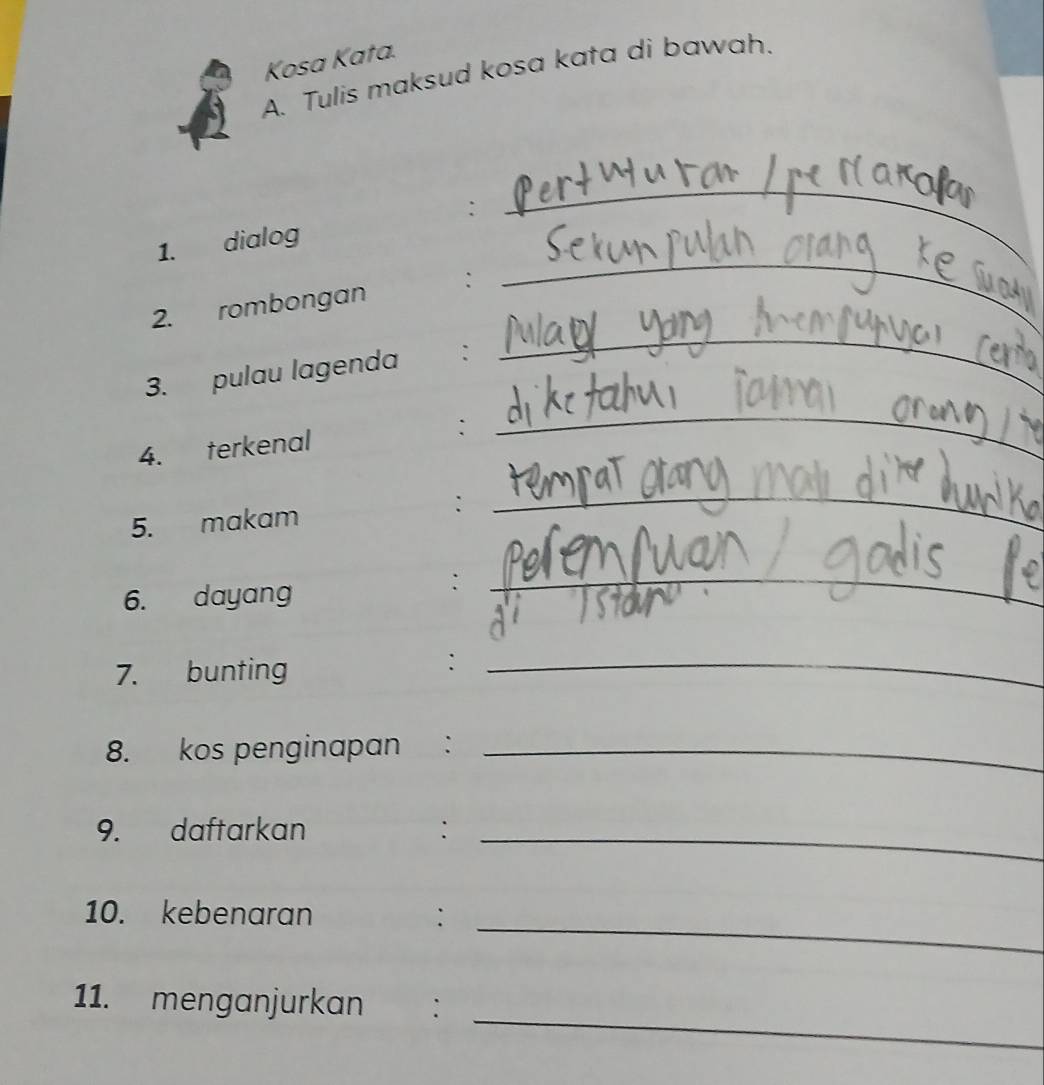 Kosa Kata.
A. Tulis maksud kosa kata di bawah.
1. dialog : Perturan /
2. rombongan : Sekumpulan orang ke
3. pulau lagenda : yang mempunyai cerita
4. terkenal : diketahui ramai orang /
5. makam : tempat orang
6. dayang : Perempuan / gadis Pe
di Istana.
7. bunting :
8. kos penginapan :
9. daftarkan :
10. kebenaran :
11. menganjurkan :